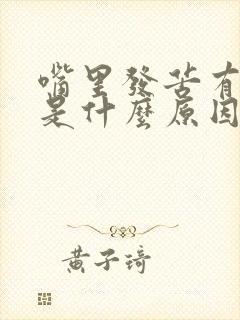 嘴里發苦有
是什麼原因
黄子琦